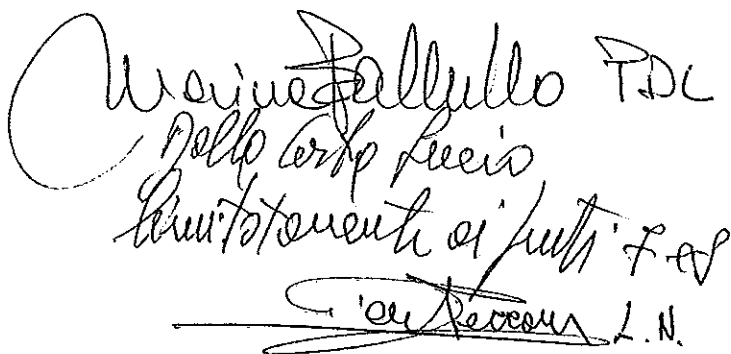 Marina Ballullo PDL
Dalla Costa Lucio
limitatamente ai punti 7 ed
L.N.